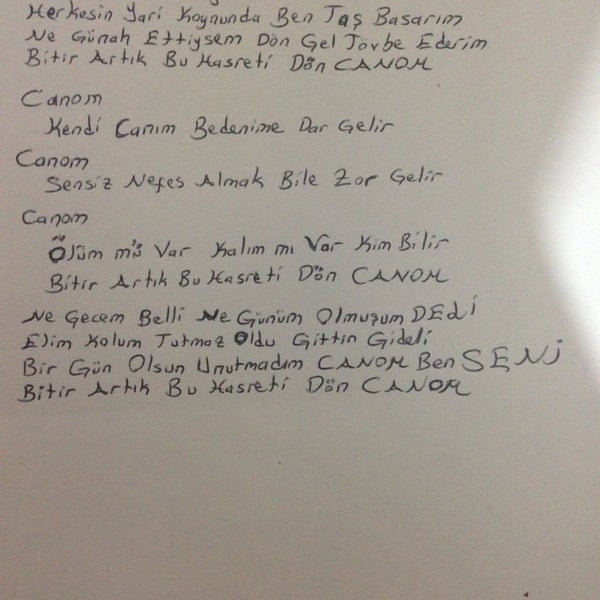 Herkesin Yari Koynunda Ben Taş Basarım
Ne Günah Ettiysem Dön Gel Tövbe Ederim
Bitir Artık Bu Hasreti Dön CANOM
Canom
Kendi Canım Bedenime Dar Gelir
Canom
Sensiz Nefes Almak Bile Zor Gelir
Canom
Ölüm mü Var Kalım mı Var Kim Bilir
Bitir Artık Bu Hasreti Dön CANOM
Ne Gecem Belli Ne Günüm Olmuşum DELİ
Elim Kolum Tutmaz Oldu Gittin Gideli
Bir Gün Olsun Unutmadım CANOM Ben SENİ
Bitir Artık Bu Hasreti Dön CANOM